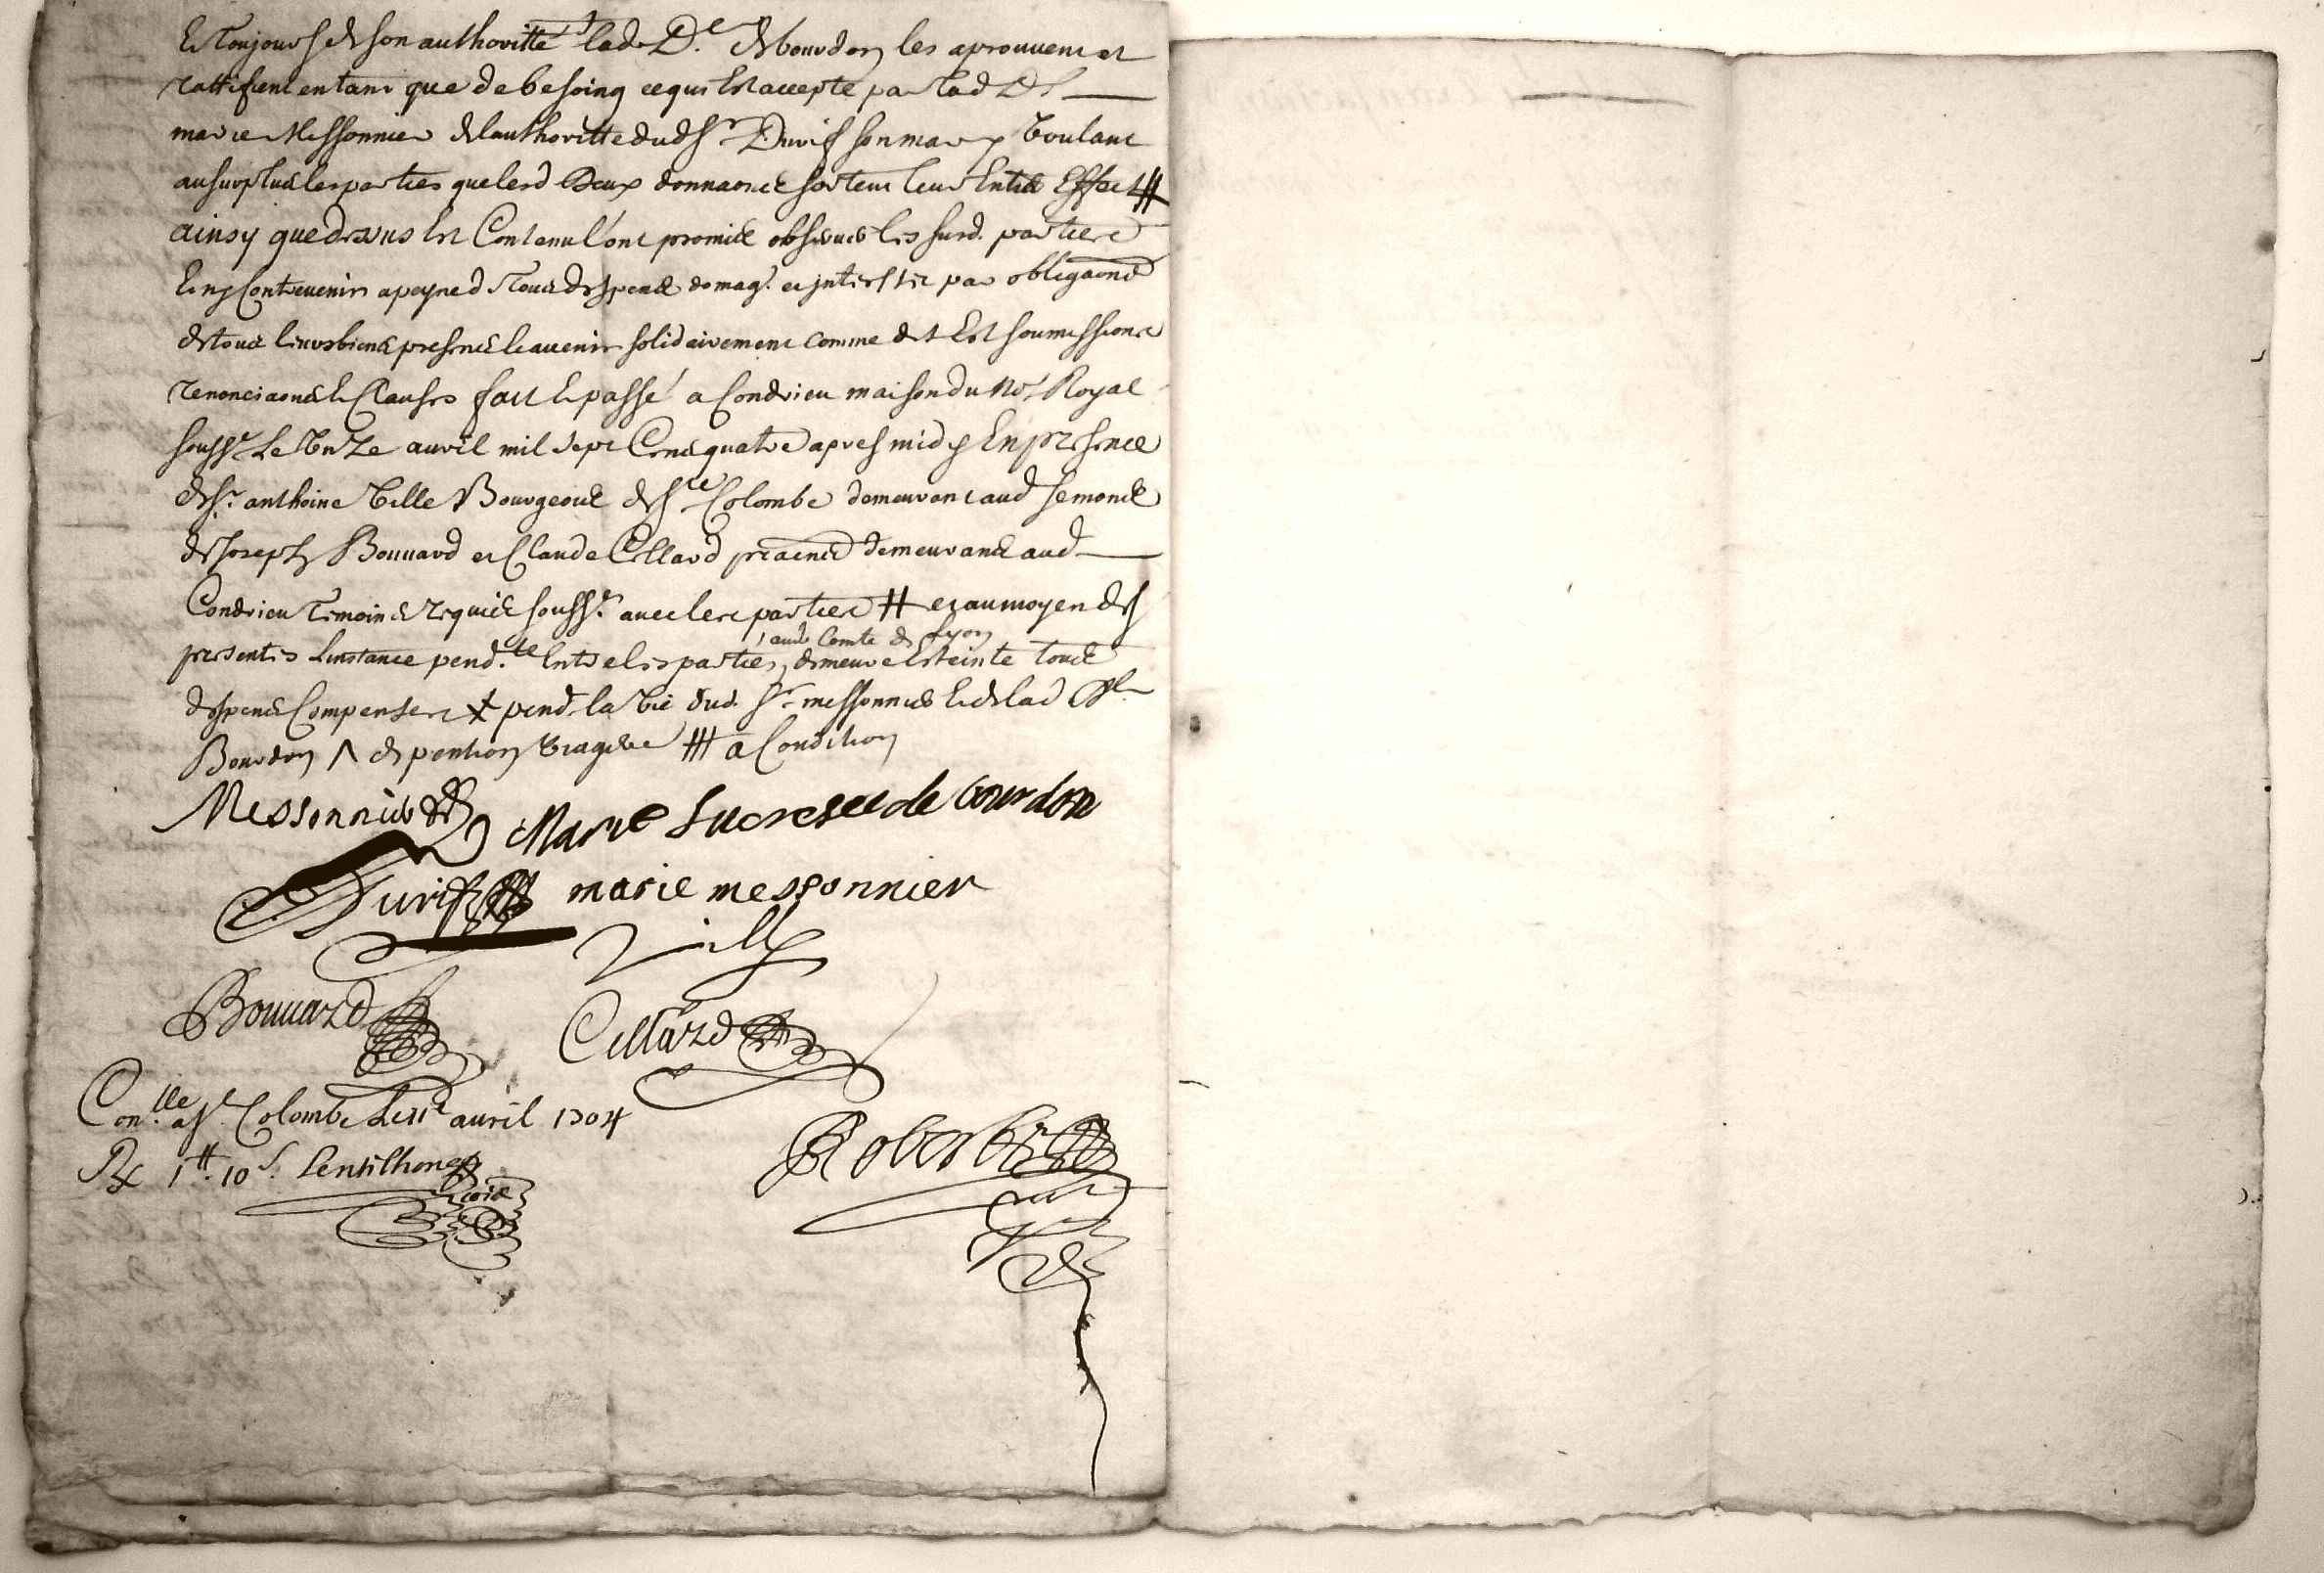 Et Toujours de son authoritté lad. D.e de bourdon les aprouvent et
rattifient en tant que de besoing ce qui Est accepté par lad D.e
marie Messonnier de lauthoritté dud s.r Durif son mary Voulant
au surplus les parties que lesd Deux donnaons sortent leur Entier Effect #
ainsy que dessus Est Contenu l'ont promis observer les surd. parties
Et ny Contrevenir a peyne de Tous despens domag.s et interests par obligaons
de tous leurs biens presents Et avenir solidairement comme dit Est soumissions
renonciaons Et Clauses fait Et passé a Condrieu maison du no.re Royal
souss.é Le Unze avril mil sept Cens quatre apres midy En presence
de s.r anthoine Ville Bourgeois de s.te Colombe demeurant aud Semons
de Joseph Bouvard et Claude Cellard demeurans aud
Condrieu Temoins requis souss.es avec les parties # et au moyen des
aud. Comte de Lyon
presentes Linstance pend.te Entre les parties, demeure Esteinte tous
despens Compenses pend. la Vie dud. s.r messonnier Et de lad D.lle
Bourdon Λ de pention Viagere ## a Condition
Messonnier
Marie Lucresse de bourdon
Durif
marie messonnier
Ville
Bouuard
Cellard
Con.lle a s.te Colombe Le 11e avril 1704
Rx 1tt. 10 s. Lentilhon
Robert